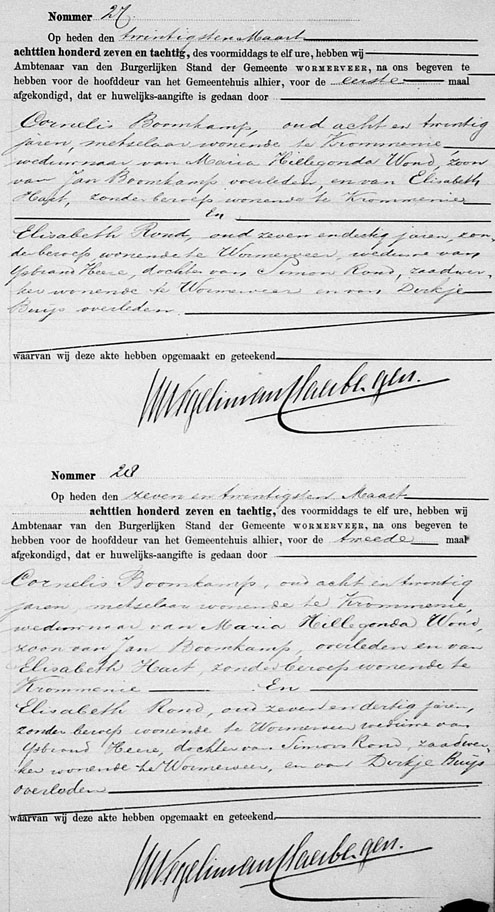 Nommer 27
Op heden den twintigsten Maart
achttien honderd zeven en tachtig, des voormiddags te elf ure, hebben wij
Ambtenaar van den Burgerlijken Stand der Gemeente WORMERVEER, na ons begeven te
hebben voor de hoofddeur van het Gemeentehuis alhier, voor de eerste maal
afgekondigd, dat er huwelijks-aangifte is gedaan door
Cornelis Boomkamp, oud acht en twintig
jaren, metselaar wonende te Krommenie
weduwnaar van Maria Hillegonda Wond, zoon
van Jan Boomkamp overleden, en van Elisabeth
Hart, zonder beroep wonende te Krommenie
En
Elisabeth Rond, oud zeven en dertig jaren, zon-
der beroep wonende te Wormerveer, weduwe van
Ysbrand Heere, dochter van Simon Rond, zaadwer-
ker wonende te Wormerveer en van Dirkje
Buijs overleden.
waarvan wij deze akte hebben opgemaakt en geteekend
Nommer 28
Op heden den zeven en twintigsten Maart
achttien honderd zeven en tachtig, des voormiddags te elf ure, hebben wij
Ambtenaar van den Burgerlijken Stand der Gemeente WORMERVEER, na ons begeven te
hebben voor de hoofddeur van het Gemeentehuis alhier, voor de tweede maal
afgekondigd, dat er huwelijks-aangifte is gedaan door
Cornelis Boomkamp, oud acht en twintig
jaren, metselaar wonende te Krommenie,
weduwnaar van Maria Hillegonda Wond,
zoon van Jan Boomkamp, overleden en van
Elisabeth Hart, zonder beroep wonende te
Krommenie En
Elisabeth Rond, oud zeven en dertig jaren,
zonder beroep wonende te Wormerveer weduwe van
Ysbrand Heere, dochter van Simon Rond, zaadwer-
ker wonende te Wormerveer, en van Dirkje Buijs
overleden
waarvan wij deze akte hebben opgemaakt en geteekend.